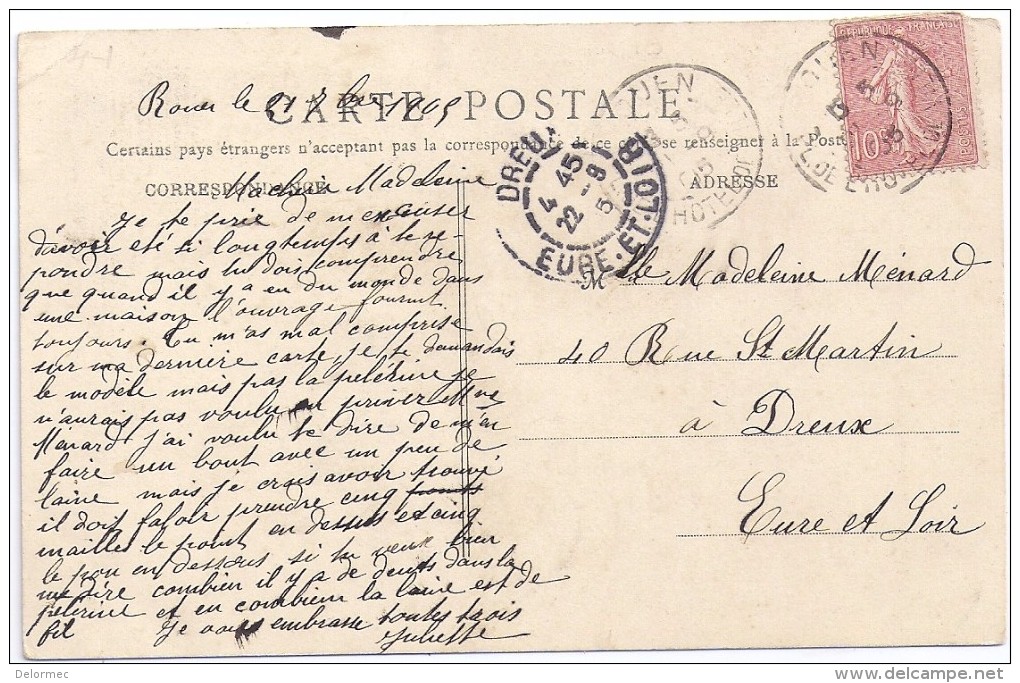 CARTE POSTALE
Rouen le 21 7bre 1905
Certains pays étrangers n'acceptant pas la correspondance de ce se renseigner à la Poste
CORRESPONDANCE
ADRESSE
Ma chérie Madeleine
Je te prie de m'excuser
d'avoir été si longtemps à te re-
pondre mais tu dois comprendre
que quand il y a eu du monde dans
une maison l'ouvrage fournit
toujours. Tu m'as mal comprise
sur ma dernière carte, je te demandais
le modèle mais pas la pelerine je
n'aurais pas voulu en priver Mme
Menard j'ai voulu te dire de m'en
faire un bout avec un peu de
laine mais je crais avoir trouvé
il doit faloir prendre cinq points
mailles le point en dessus et cinq
le pon en dessous si tu veux bien
me dire combien il y a de dents dans la
pelerine et en combien la laine est de
fil Je vous embrasse toutes trois
Juliette
Mlle Madeleine Ménard
40 Rue St Martin
à Dreux
Eure et Loir
DREUX
4 45
22 -9
5
EURE-ET-LOIR
ROUEN
HOTEL DE
REPUBLIQUE FRANÇAISE
10c
POSTES
Delormec
www.delcampe.net